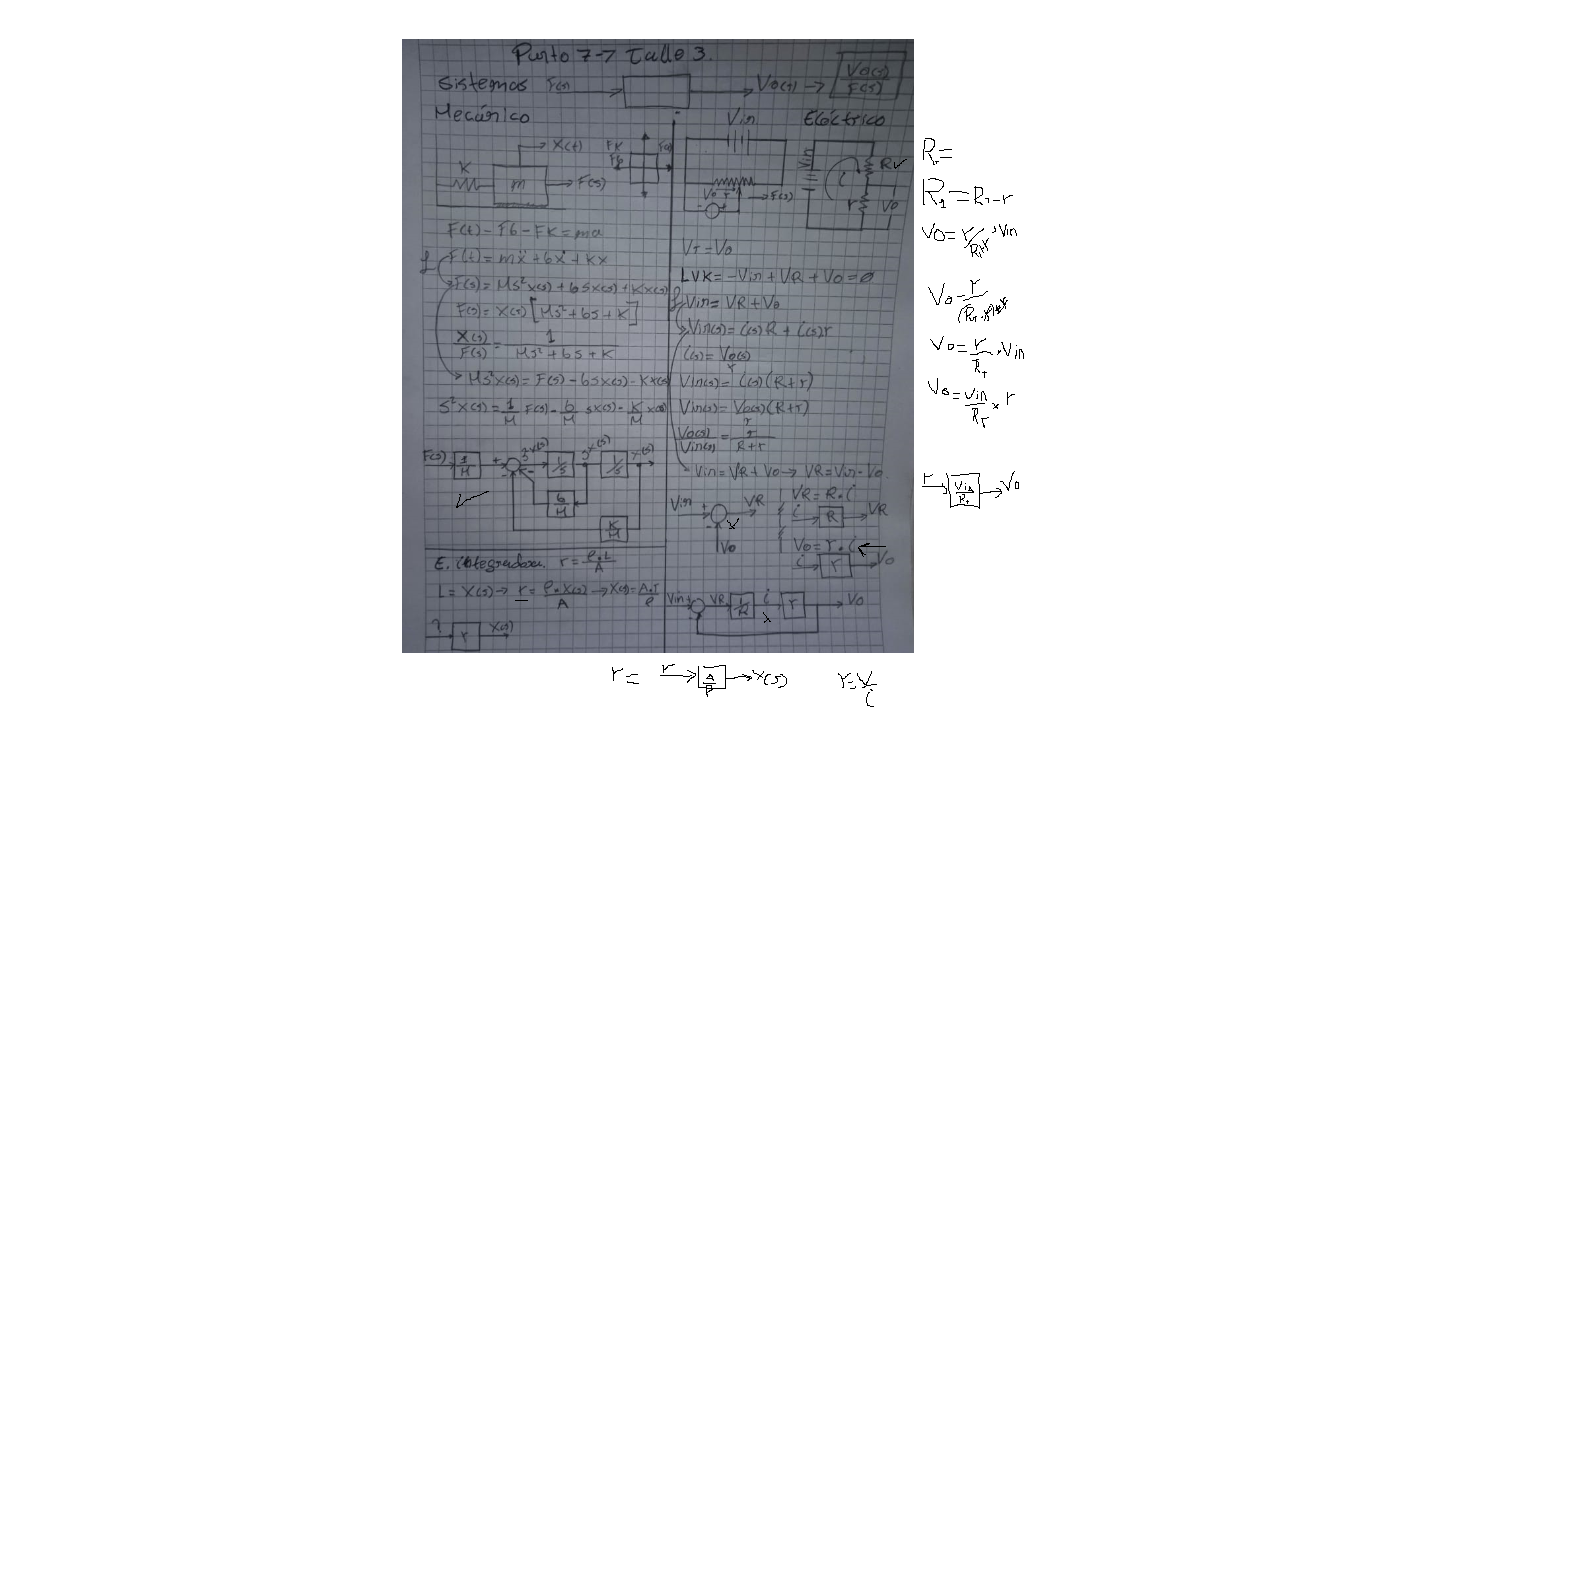 Punto 7 → Talle 3.
Sistemas F(s) → Vo(t) → Vo(s)/F(s)
Mecánico
Vin Eléctrico
x(t)
FK
Fb
F(s)
K
m
F(s)
F(t) - Fb - FK = ma
F(t) = mẍ + bẋ + Kx
F(s) = Ms²x(s) + bsx(s) + Kx(s)
F(s) = X(s) [Ms² + bs + K]
X(s)/F(s) = 1/(Ms² + bs + K)
Ms²x(s) = F(s) - bsx(s) - Kx(s)
S²X(s) = 1/M F(s) - b/M sx(s) - K/M x(s)
F(s) 1/M + - - s²x(s) 1/s sx(s) 1/s x(s)
b/M
K/M
E. integradora. r = ρ.L/A
L = X(s) → r = ρ.X(s)/A → X(s) = A.r/ρ
? r X(s)
Vo r
F(s)
Vin
i
R
r
Vo
Vr = Vo
LVK = -Vin + VR + Vo = 0
Vin = VR + Vo
Vin(s) = i(s)R + i(s)r
i(s) = Vo(s)/r
Vin(s) = i(s)(R+r)
Vin(s) = Vo(s)/r (R+r)
Vo(s)/Vin(s) = r/(R+r)
Vin = VR + Vo → VR = Vin - Vo.
Vin + - VR
Vo
VR = R.i
i R VR
Vo = r.i
i r Vo
Vin + - VR 1/R i r Vo
R_T =
R₁ = R_T - r
Vo = r/(R₁+r) . Vin
Vo = r/((R_T - r)+r)
Vo = r/R_T . Vin
Vo = Vin/R_T × r
r Vin/R_T Vo
r = r A/ρ X(s) r = V/i